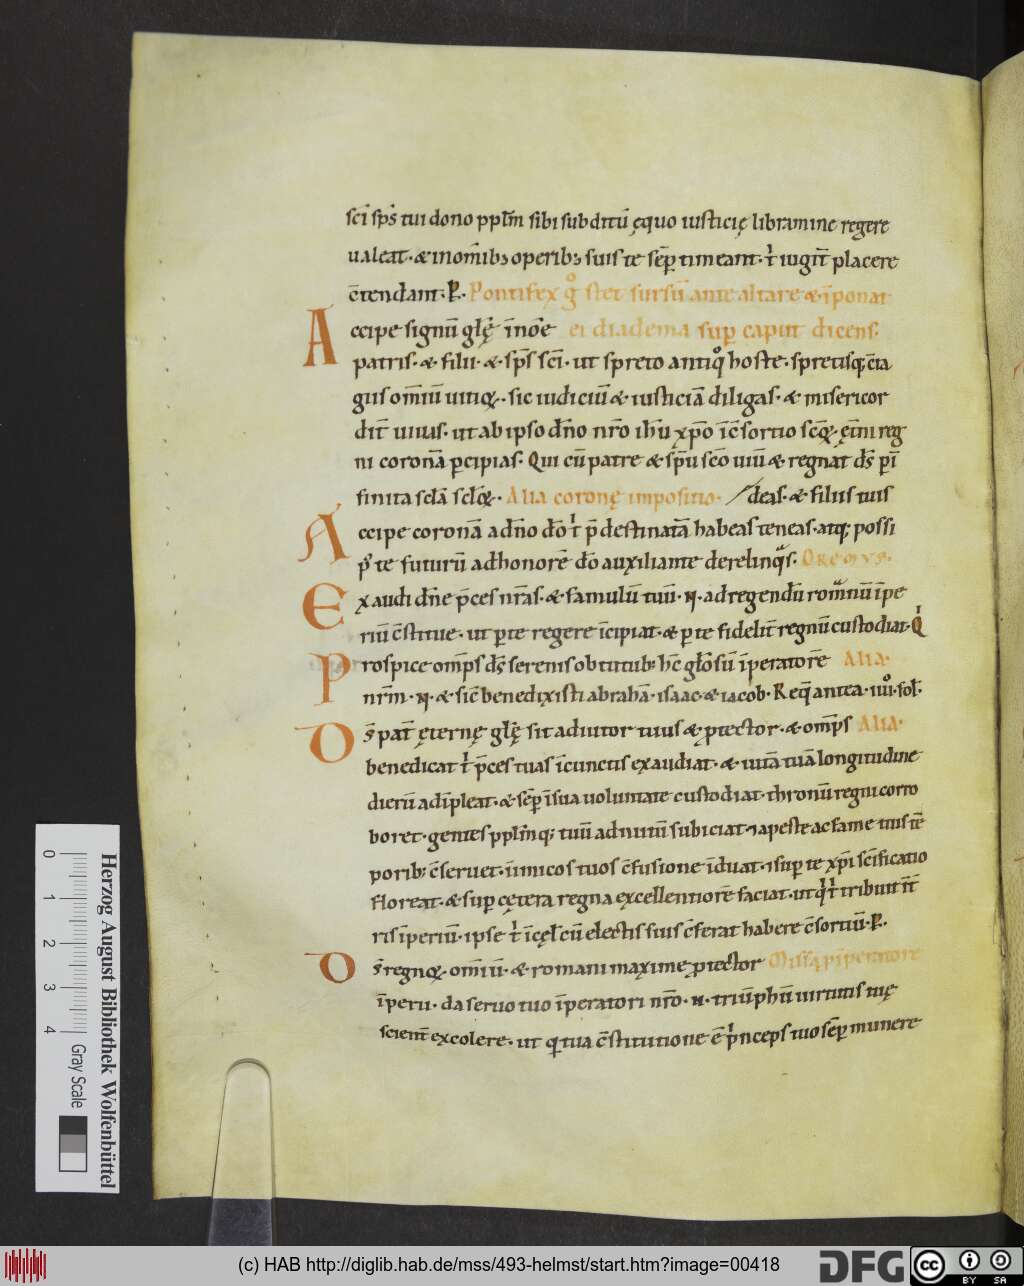 scī sps̄ tui dono pplm̄ sibi subditū ęquo iusticię libramine regere
ualeat · & inom̄ib; operib; suis te sēp timeant · t̄ iugit̄ placere
c̄tendant · R̄ · Pontifex g̊ stet sursū ante altare & īponat
Accipe signū glę̄ īnoīe ei diadema sup caput dicens ·
patris · & filii · & sps̄ scī · ut spreto antiq̊ hoste · spretisq; c̄ta
giis om̄iū uitioꝝ · sic iudiciū & iusticiā diligas · & misericor
dit̄ uiuas · ut ab ipso dn̄o nr̄o ih̄u xp̄o īc̄sortio scōꝝ · ęt̄ni reg
ni coronā percipias · Qui cū patre & sp̄u scō uiu & regnat ds̄ p̄ ī
finita scl̄a scl̄oꝝ · Alia coronę impositio · deas · & filiis tuis
Accipe coronā a dn̄o dō t̄ p̄destinatā habeas teneas · atq; possi
p̊ te futurū ad honorē dō auxiliante derelinq̄s · Oremus ·
Exaudi dn̄e p̄ces nr̄as · & famulū tuū · N · ad regendū romanū īpe
riū c̄stitue · ut per te regere īcipiat · & per te fidelit̄ regnū custodiat · Q
Prospice omp̄s ds̄ serenis obtutib; hc̄ gl̄osū īperatorē Alia ·
nr̄m · N · & sic̄ benedixisti abrahā · isaac · & iacob · Req̄ antea · iiii · fol̄ ·
Ds̄ pat̄ ęternę glę̄ sit adiutor tuus & p̄tector · & omp̄s Alia ·
benedicat t̄ p̄ces tuas īcunctis exaudiat · & uitā tuā longitudine
dierū adīpleat · & sēp īsua uoluntate custodiat · thronū regni corro
boret · gentes pplm̄q; tuū ad nutū subiciat · a peste ac fame tuis tē
porib; c̄seruet · inimicos tuos c̄fusione īduat · sup te xp̄i sc̄ificatio
floreat · & sup cętera regna excellentiorē faciat · ut q̄ t̄ tribuit t̄
ris īperiū · ipse t̄ īcęl̄ cū electis suis c̄ferat habere c̄sortiū · R̄ ·
Ds̄ regnoꝝ · om̄iū · & romani maxime p̄tector Missa p̄ īperatore
īperii · da seruo tuo īperatori nr̄o · N · triūphū uirtutis tuę
scient̄ excolere · ut q̄ tua c̄stitutione ē p̄nceps tuo sēp munere
0 1 2 3 4
Herzog August Bibliothek Wolfenbüttel
Gray Scale
(c) HAB http://diglib.hab.de/mss/493-helmst/start.htm?image=00418
DFG
cc BY SA